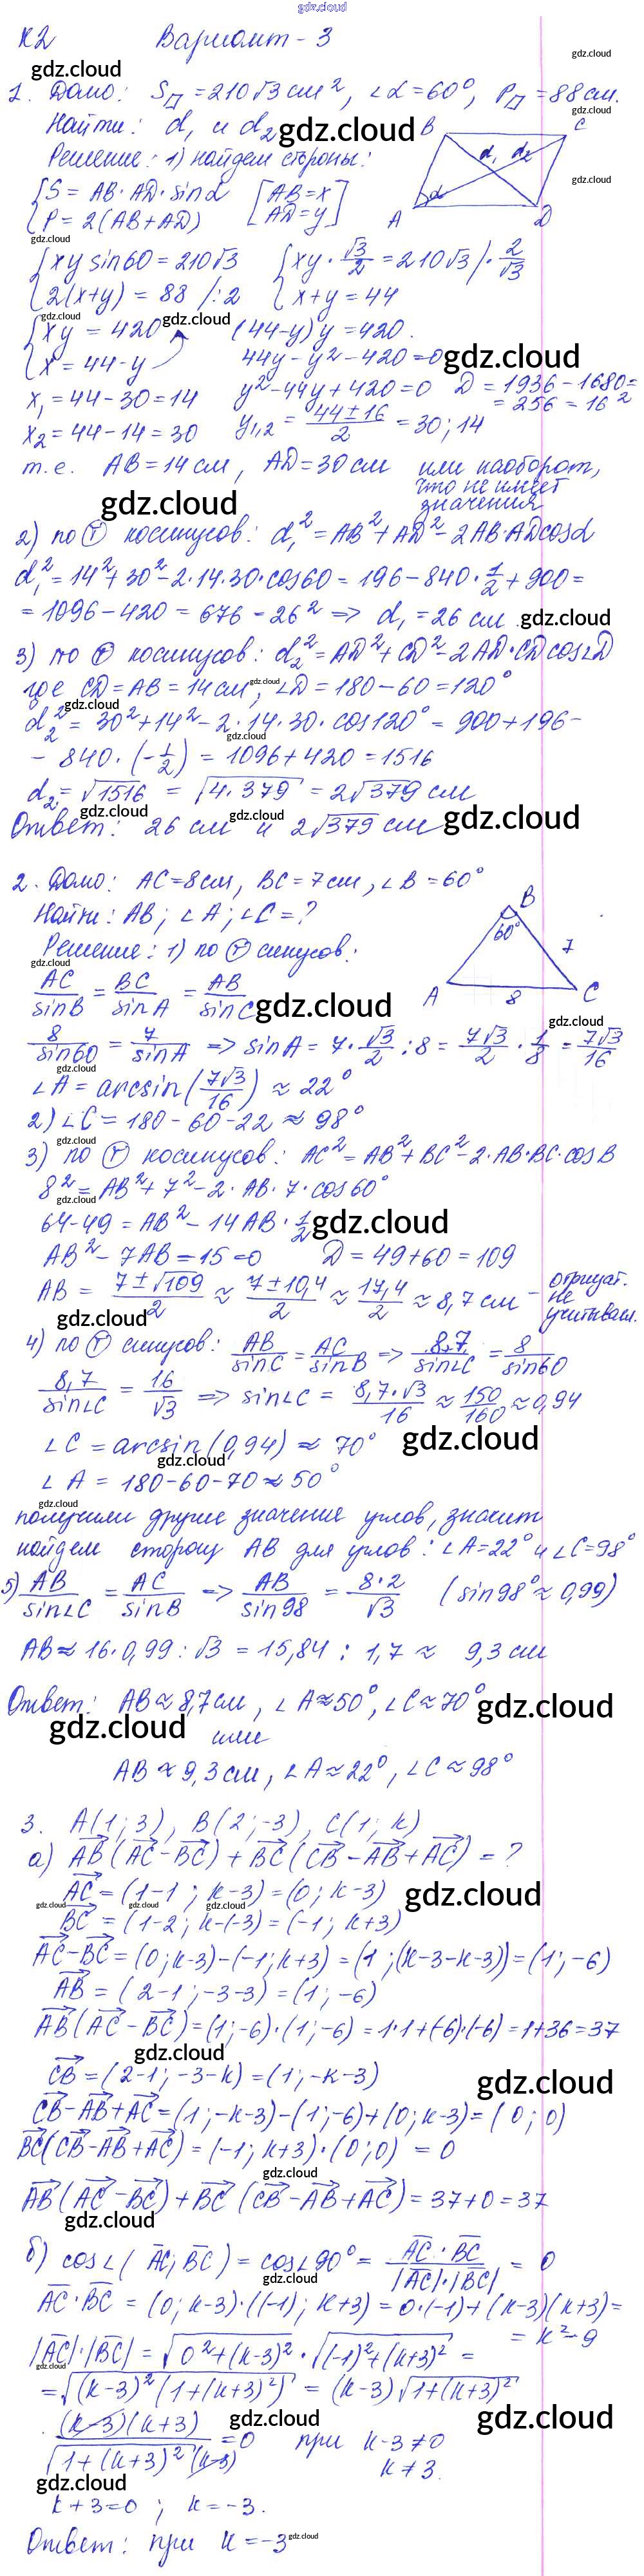 gdz.cloud
К2 Вариант-3
gdz.cloud
gdz.cloud
1. Дано: S▱=210√3 см², ∠α=60°, P▱=88 см.
Найти: d₁ и d₂
gdz.cloud
B C
gdz.cloud
Решение: 1) найдем стороны:
d₁ d₂
gdz.cloud
{S = AB·AD·sinα [AB=x
{P = 2(AB+AD) AD=y]
α
A D
gdz.cloud
{xy sin60=210√3 {xy·√3/2=210√3 /·2/√3
{2(x+y) = 88 /:2 {x+y=44
gdz.cloud
{xy = 420 (44-y)y=420.
{x = 44-y 44y-y²-420=0
gdz.cloud
x₁=44-30=14 y²-44y+420=0 D = 1936-1680=
= 256 = 16²
x₂=44-14=30 y₁,₂ = (44±16)/2 = 30; 14
т.е. AB=14 см, AD=30 см или наоборот,
что не имеет
значения
gdz.cloud
2) по Ⓣ косинусов: d₁²=AB²+AD²-2AB·ADcosα
d₁²=14²+30²-2·14·30·cos60=196-840·1/2+900=
=1096-420=676=26² => d₁=26 см
gdz.cloud
3) по Ⓣ косинусов: d₂²=AD²+CD²-2AD·CDcos∠D
где CD=AB=14 см, ∠D=180-60=120°
gdz.cloud
d₂²=30²+14²-2·14·30·cos120°=900+196-
gdz.cloud
-840·(-1/2)=1096+420=1516
d₂=√1516 = √4·379 = 2√379 см
gdz.cloud gdz.cloud gdz.cloud
Ответ: 26 см и 2√379 см
2. Дано: AC=8см, BC=7см, ∠B=60°
Найти: AB; ∠A; ∠C=?
B
60°
7
A 8 C
Решение: 1) по Ⓣ синусов:
gdz.cloud
AC/sinB = BC/sinA = AB/sinC
gdz.cloud
gdz.cloud
8/sin60 = 7/sinA => sinA=7·√3/2:8=7√3/2·1/8=7√3/16
gdz.cloud
∠A=arcsin(7√3/16)≈22°
2) ∠C=180-60-22≈98°
gdz.cloud
3) по Ⓣ косинусов: AC²=AB²+BC²-2·AB·BC·cosB
8²=AB²+7²-2·AB·7·cos60°
64-49=AB²-14AB·1/2
gdz.cloud
AB²-7AB-15=0 D=49+60=109
AB=(7±√109)/2≈(7±10,4)/2≈17,4/2≈8,7 см - отрицат.
не
учитывам.
gdz.cloud
4) по Ⓣ синусов: AB/sinC=AC/sinB => 8,7/sin∠C=8/sin60
8,7/sin∠C=16/√3 => sin∠C=8,7·√3/16≈150/160≈0,94
gdz.cloud
∠C=arcsin(0,94)≈70°
gdz.cloud
∠A=180-60-70≈50°
gdz.cloud
получили другие значение углов, значит
найдем сторону AB для углов: ∠A=22° и ∠C=98°
5) AB/sin∠C=AC/sinB => AB/sin98=8·2/√3 (sin98°≈0,99)
AB≈16·0,99:√3=15,84:1,7≈9,3 см
Ответ: AB≈8,7см, ∠A≈50°, ∠C≈70°
gdz.cloud
gdz.cloud
или
AB≈9,3см, ∠A≈22°, ∠C≈98°
3. A(1;3), B(2;-3), C(1;k)
а) AB(AC-BC)+BC(CB-AB+AC)=?
AC=(1-1; k-3)=(0; k-3)
gdz.cloud
gdz.cloud gdz.cloud
BC=(1-2; k-(-3))=(-1; k+3)
AC-BC=(0;k-3)-(-1;k+3)=(1;(k-3-k-3))=(1;-6)
AB=(2-1;-3-3)=(1;-6)
AB(AC-BC)=(1;-6)·(1;-6)=1·1+(-6)·(-6)=1+36=37
gdz.cloud
CB=(2-1;-3-k)=(1;-k-3)
gdz.cloud
CB-AB+AC=(1;-k-3)-(1;-6)+(0;k-3)=(0;0)
BC(CB-AB+AC)=(-1;k+3)·(0;0) = 0
gdz.cloud
AB(AC-BC)+BC(CB-AB+AC)=37+0=37
gdz.cloud
б) cos∠(AC;BC)=cos∠90°=AC·BC/|AC|·|BC|=0
gdz.cloud
AC·BC=(0;k-3)·((-1);k+3)=0·(-1)+(k-3)(k+3)=
=k²-9
|AC|·|BC|=√0²+(k-3)²·√(-1)²+(k+3)²=
gdz.cloud
=√(k-3)²(1+(k+3)²)=(k-3)√1+(k+3)²
gdz.cloud gdz.cloud
(k-3)(k+3)/√1+(k+3)²(k-3)=0 при k-3≠0
k≠3.
gdz.cloud
k+3=0; k=-3.
Ответ: при k=-3
gdz.cloud